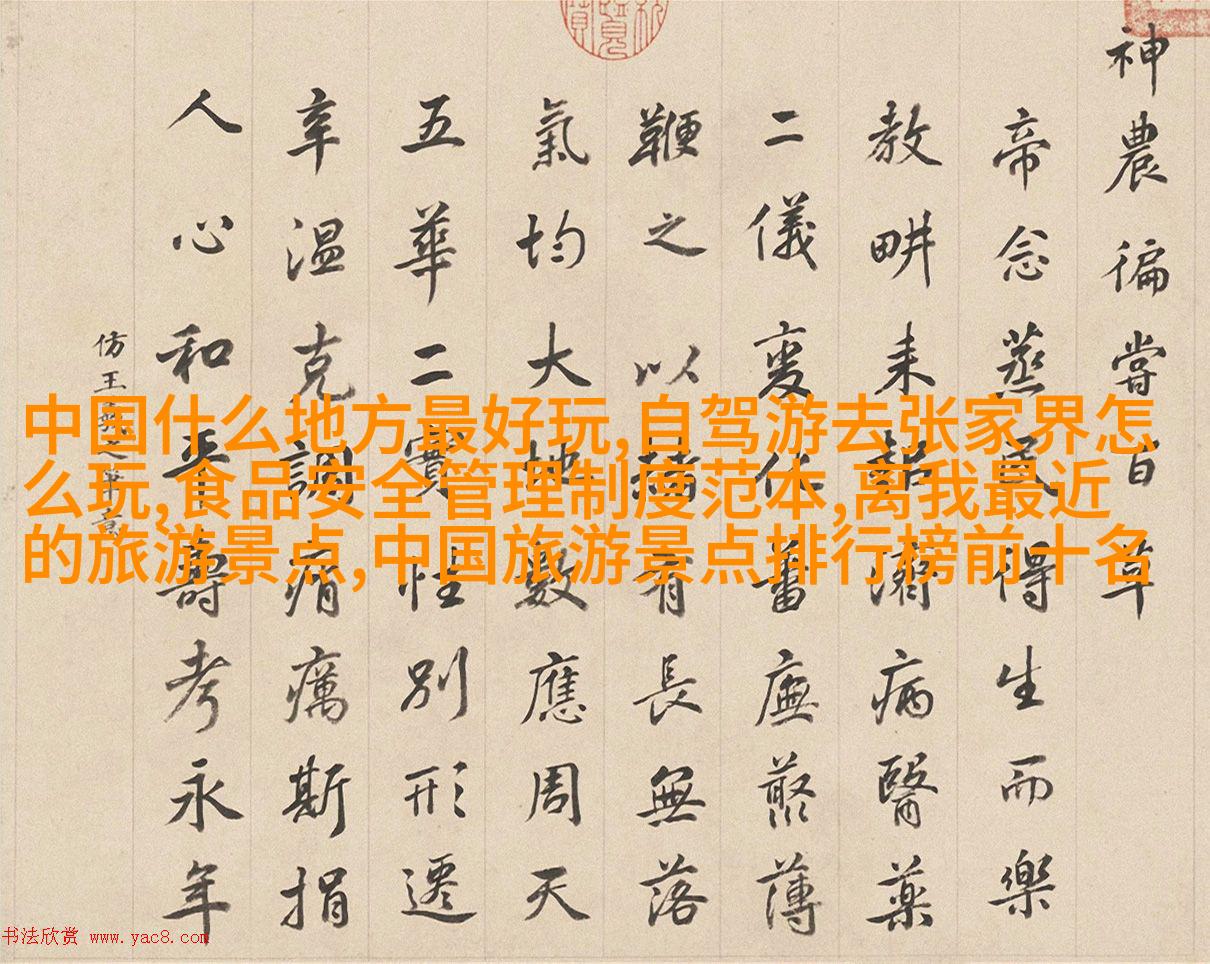 神農徧嘗百草
帝念蒸民得生而樂
教畊耒濟病醫藥
二儀變化蕃廡叢薄
鞭之以赭有長無落
氣均大地數應周天
五華二實性別形遷
辛温克調痟癘斯捐
人心和平壽考永年
仿王羲之筆意
中国什么地方最好玩,自驾游去张家界怎
么玩,食品安全管理制度范本,离我最近
的旅游景点,中国旅游景点排行榜前十名
书法欣赏 www.yac8.com